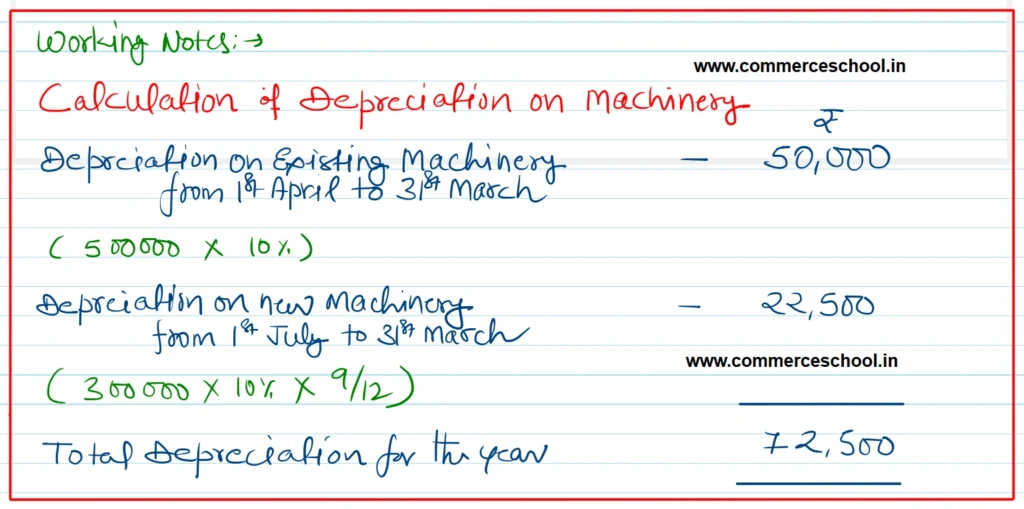 Working Notes:→
www.commerceschool.in
Calculation of Depreciation on Machinery
₹
Depreciation on Existing Machinery — 50,000
from 1st April to 31st March
( 500000 × 10% )
Depreciation on new Machinery — 22,500
from 1st July to 31st March
www.commerceschool.in
( 300000 × 10% × 9/12 )
Total Depreciation for the year 72,500